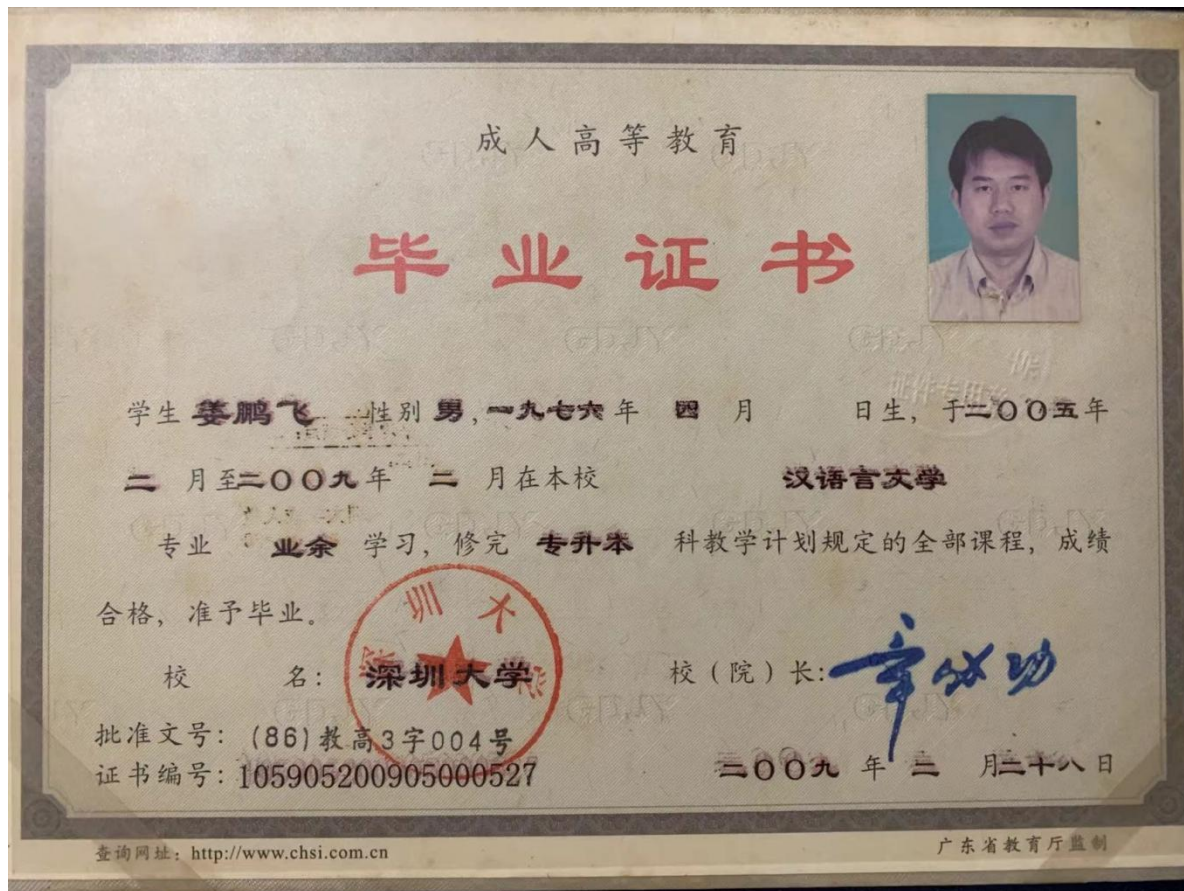 成人高等教育
毕业证书
证件专用章
学生 姜鹏飞 性别 男,一九七六年 四 月 日生, 于二〇〇五年
二 月至二〇〇九年 二 月在本校 汉语言文学
专业 业余 学习, 修完 专升本 科教学计划规定的全部课程, 成绩
合格, 准予毕业。
深圳大学
校 名: 深圳大学 校(院)长: 章必功
批准文号: (86)教高3字004号
证书编号: 105905200905000527 二〇〇九 年 二 月二十八日
查询网址: http://www.chsi.com.cn 广东省教育厅监制